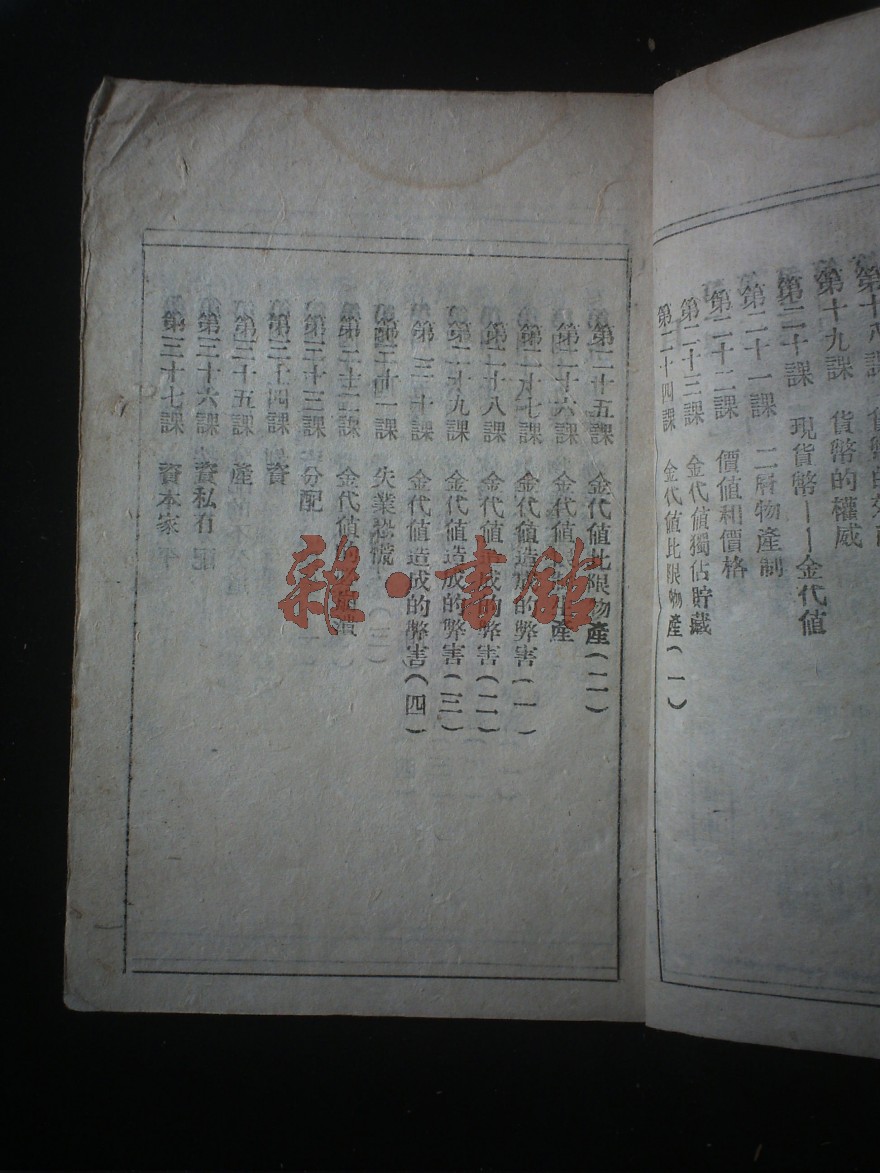 第十九課　貨幣的權威
第二十課　現貨幣——金代值
第二十一課　二層物產制
第二十二課　價值和價格
第二十三課　金代值獨佔貯藏
第二十四課　金代值比限物產(一)
第二十五課　金代值比限物產(二)
第二十六課　金代值 產
第二十七課　金代值造成的弊害(一)
第二十八課　金代值造成的弊害(二)
第二十九課　金代值造成的弊害(三)
第三十課　金代值造成的弊害(四)
第三十一課　失業恐慌
第三十二課　金代值的
第三十三課　分配
第三十四課　資
第三十五課　產
第三十六課　資私有
第三十七課　資本家
雜·書館